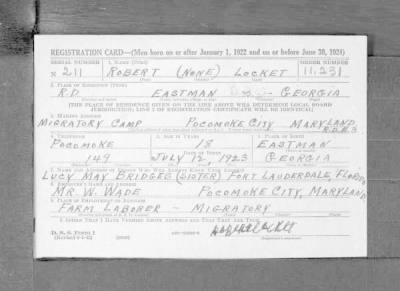 REGISTRATION CARD—(Men born on or after January 1, 1922 and on or before June 30, 1924)
SERIAL NUMBER 1. NAME (Print) ORDER NUMBER
N 211 ROBERT (NONE) LOCKET 11,231
2. PLACE OF RESIDENCE (Print)
R.D. EASTMAN GEORGIA
[THE PLACE OF RESIDENCE GIVEN ON THE LINE ABOVE WILL DETERMINE LOCAL BOARD
JURISDICTION; LINE 2 OF REGISTRATION CERTIFICATE WILL BE IDENTICAL]
3. MAILING ADDRESS
MIGRATORY CAMP POCOMOKE CITY MARYLAND
R.D. #3
4. TELEPHONE 5. AGE IN YEARS 6. PLACE OF BIRTH
POCOMOKE 18 EASTMAN
DATE OF BIRTH
149 JULY 12, 1923 GEORGIA
7. NAME AND ADDRESS OF PERSON WHO WILL ALWAYS KNOW YOUR ADDRESS
LUCY MAY BRIDGES (SISTER) FORT LAUDERDALE, FLORIDA
8. EMPLOYER'S NAME AND ADDRESS
MR. W. WADE POCOMOKE CITY, MARYLAND
9. PLACE OF EMPLOYMENT OR BUSINESS
FARM LABORER - MIGRATORY
I AFFIRM THAT I HAVE VERIFIED ABOVE ANSWERS AND THAT THEY ARE TRUE.
D. S. S. Form 1